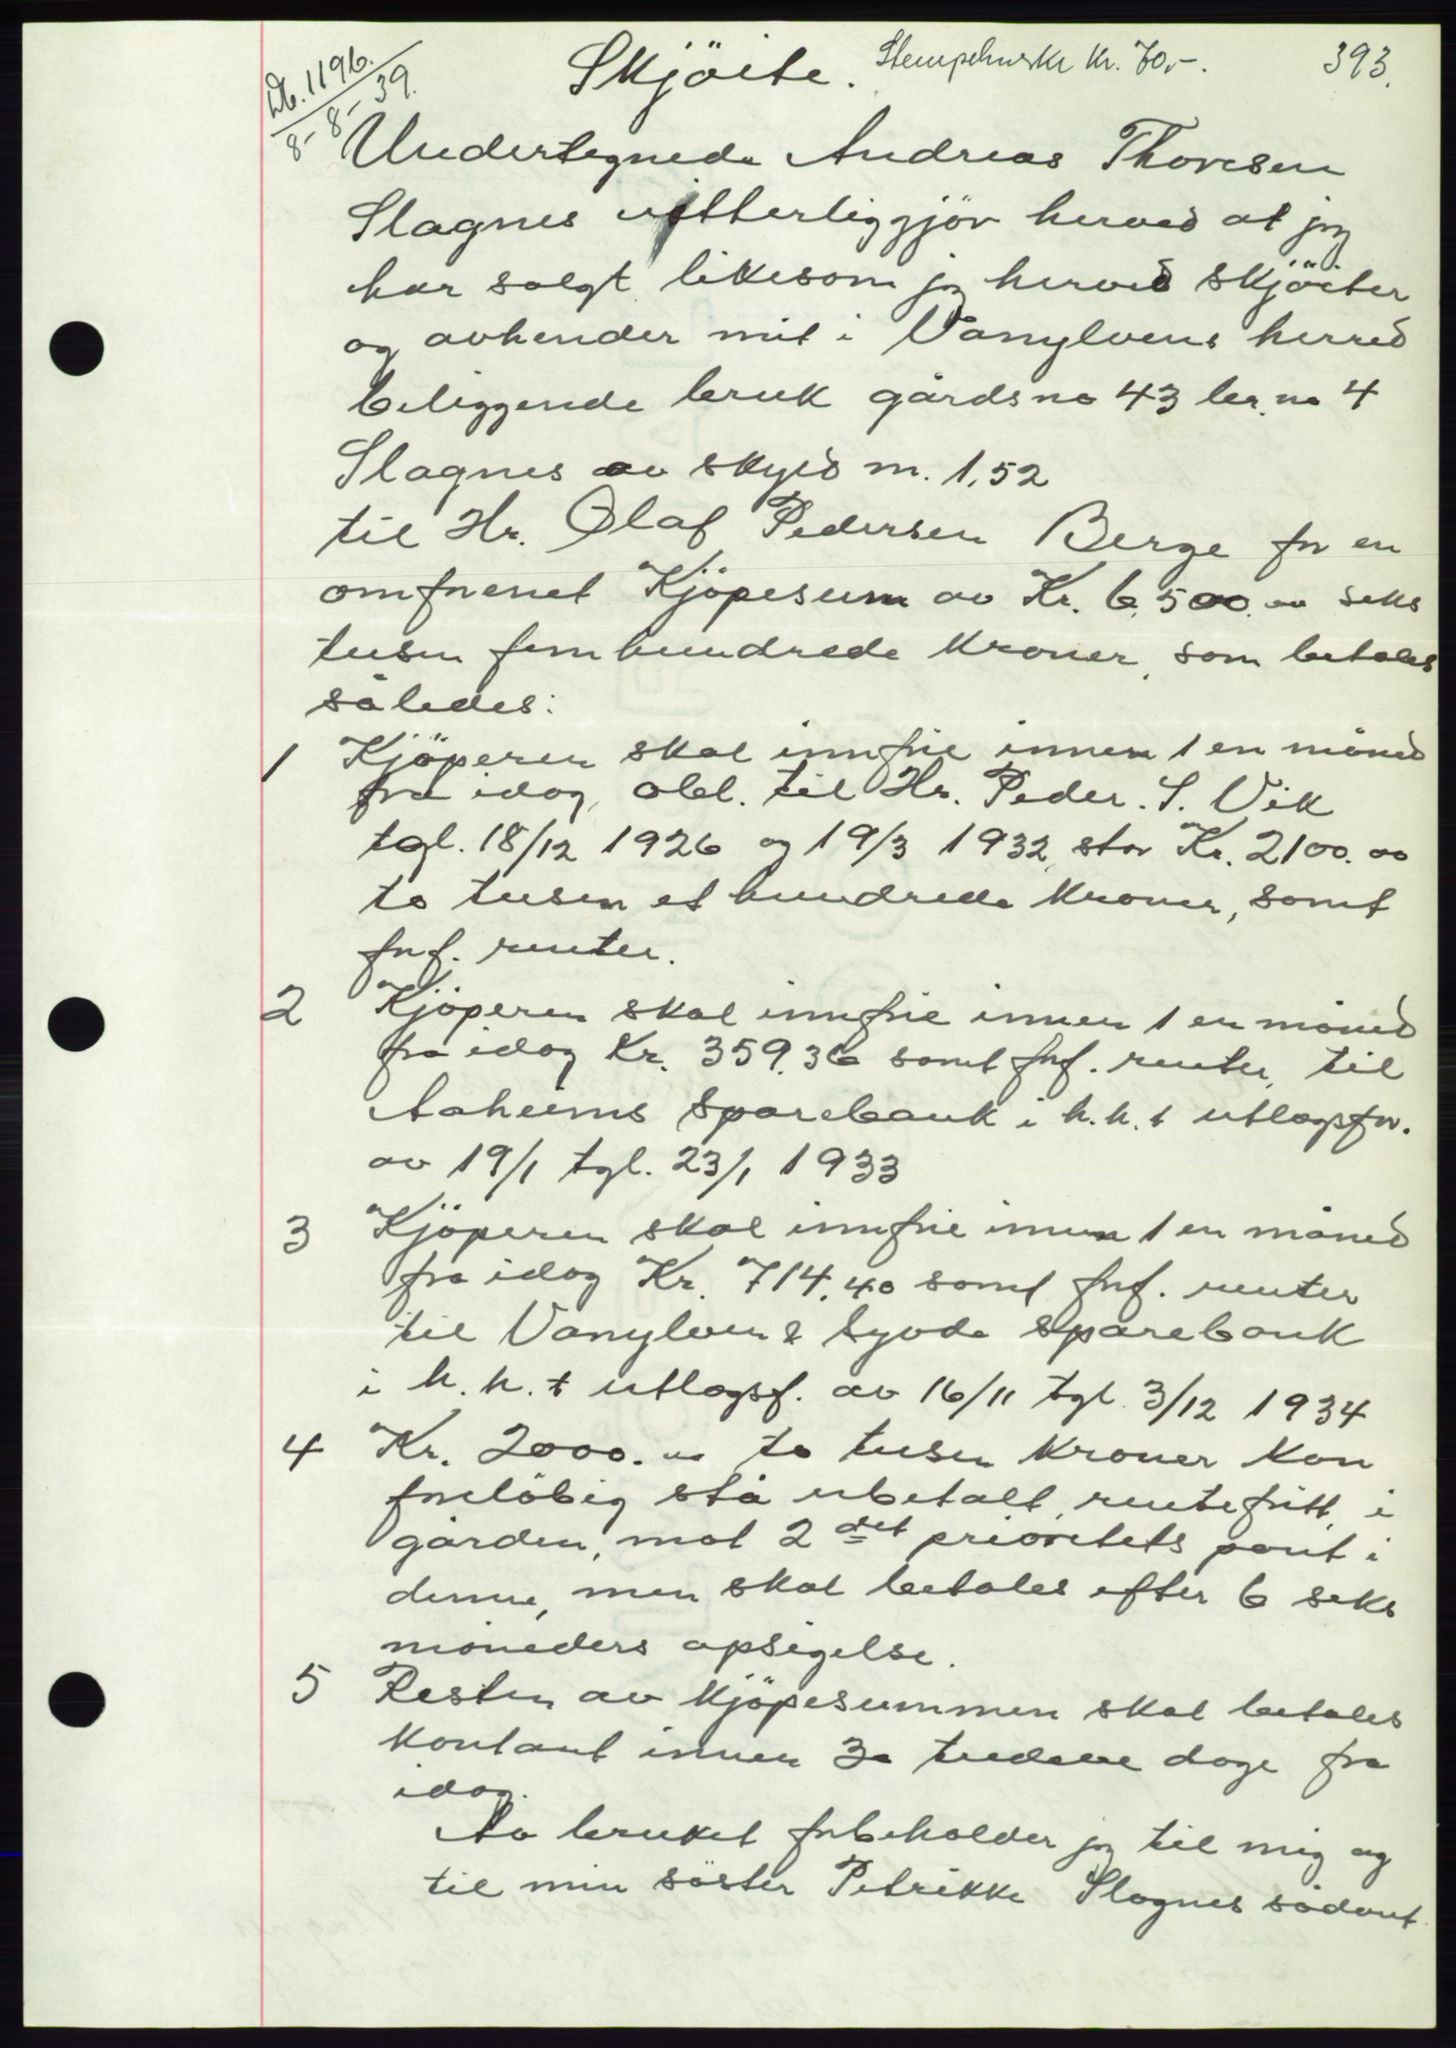 Db. 1196.
8-8-39.
Skjöite. Stempelmerke kr. 70,-. 393.
Undertegnede Andreas Thoresen
Slagnes vitterliggjör herved at jeg
har solgt likesom jeg herved skjöiter
og avhender mit i Vanylvens herred
beliggende bruk gårdsno 43 br. no 4
Slagnes av skyld m. 1,52
til Hr. Olaf Pedersen Berge for en
omforenet Kjöpesum av Kr. 6,500.00 seks
tusen femhundrede kroner, som betales
således:
1 Kjöperen skal innfrie innen 1 en måned
fra idag, obl. til Hr. Peder. S. Vik
tgl. 18/12 1926 og 19/3 1932, stor Kr. 2100.00
to tusen et hundrede kroner, samt
forf. renter.
2 Kjöperen skal innfrie innen 1 en måned
fra idag Kr. 359.36 samt forf. renter, til
Aaheims Sparebank i h.h.t utlægsfor.
av 19/1 tgl. 23/1 1933
3 Kjöperen skal innfrie innen 1 en måned
fra idag Kr. 714.40 samt forf. renter
til Vanylven & Syvde Sparebank
i h.h.t utlægsf. av 16/11 tgl. 3/12 1934
4 Kr. 2000.00 to tusen kroner kan
forelöbig stå ubetalt, rentefritt, i
gården, mot 2det prioritets pant i
denne, men skal betales efter 6 seks
måneders opsigelse.
5 Resten av kjöpesummen skal betales
kontant innen 30 tredeve dage fra
idag.
Av bruket forbeholder jeg til mig og
til min söster Petrikke Slagnes sådant